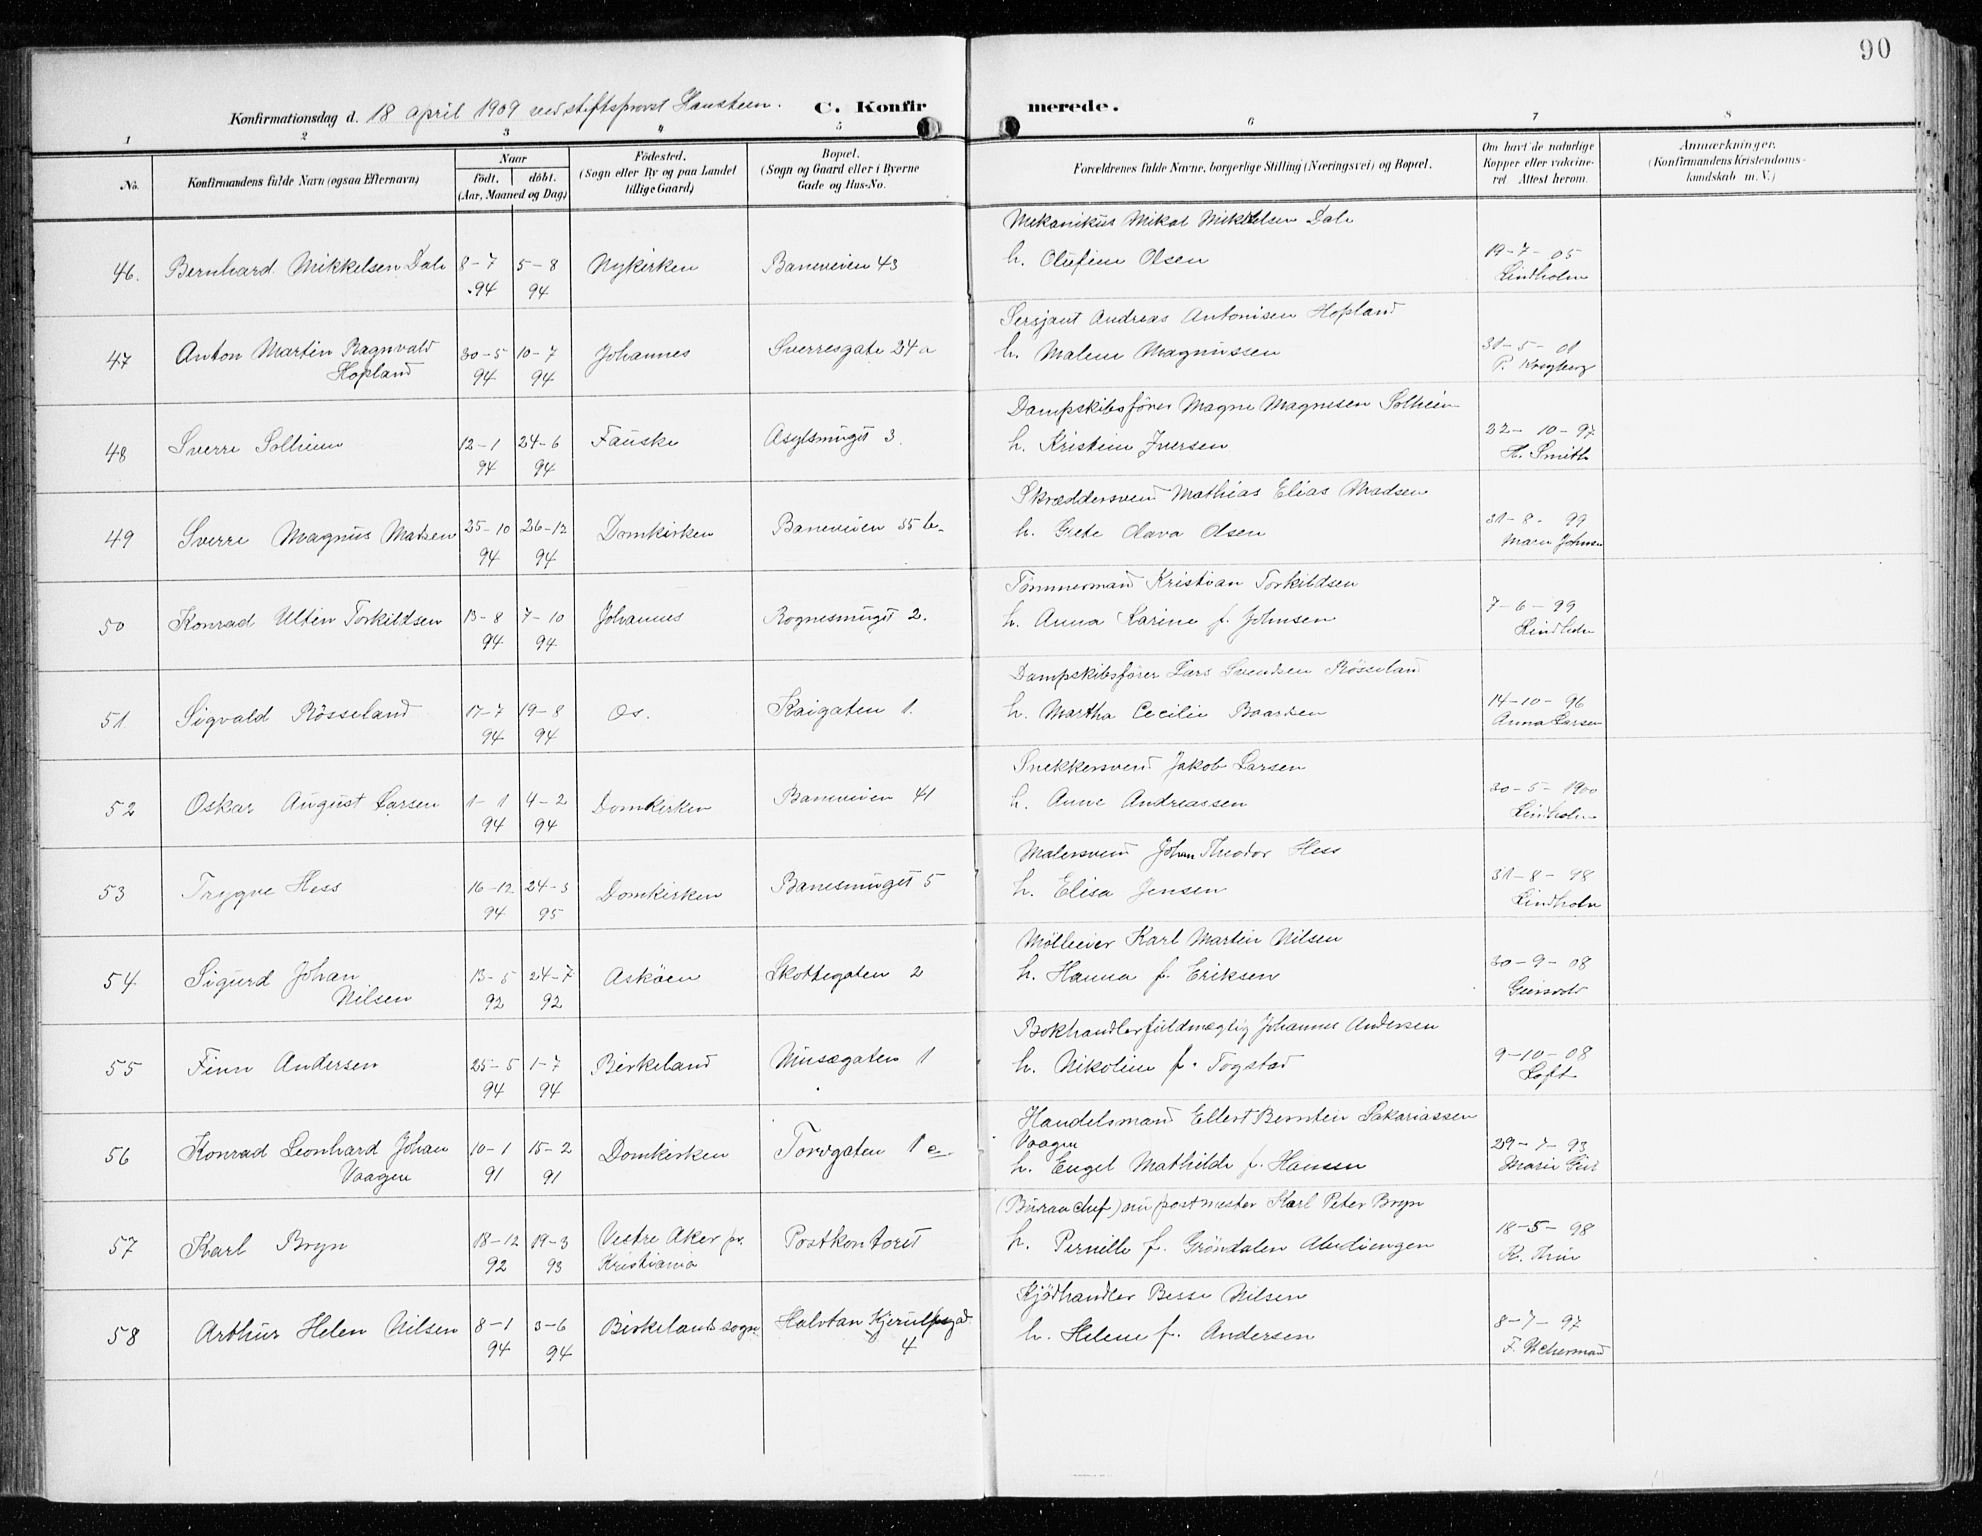 90
Konfirmationsdag d. 18 april 1909 ved stiftsprovst Hansteen. C. Konfirmerede.
1 2 3 4 5 6 7 8
No. Konfirmandens fulde Navn (ogsaa Efternavn) Naar födt. döbt. (Aar, Maaned og Dag) Födested. (Sogn eller By og paa Landet tillige Gaard) Bopæl. (Sogn og Gaard eller i Byerne Gade og Hus-No. Forældrenes fulde Navne, borgerlige Stilling (Næringsvei) og Bopæl. Om havt de naturlige Kopper eller vakcineret. Attest herom. Anmærkninger. (Konfirmandens Kristendomskundskab m. V.)
Mekanikus Mikal Mikkelsen Dale
46. Bernhard Mikkelsen Dale 8-7 94 5-8 94 Nykirken Baneveien 43 h. Olufine Olsen 19-7-05 Lindholm
Sersjant Andreas Antonisen Hopland
47 Anton Martin Ragnvald Hopland 30-5 94 10-7 94 Johannes Sverresgate 24a h. Malene Magnussen 31-5-01 P. Krogberg
Dampskibsfører Magne Magnesen Solheim
48 Sverre Solheim 12-1 94 24-6 94 Fauske Asylsmuget 3. h. Kristine Iversen 22-10-97 H. Smith
Skræddersvend Mathias Elias Madsen
49 Sverre Magnus Matsen 25-10 94 26-12 94 Domkirken Baneveien 35 b. h. Grete Olava Olsen 31-8-99 Maren Johnsen
Tømmermand Kristian Torkildsen
50 Konrad Ultin Torkildsen 13-8 94 7-10 94 Johannes Rognesmuget 2. h. Anna Karine f. Johnsen 7-6-99 Lindholm
Dampskibsfører Lars Svendsen Røsseland
51 Sigvald Rösseland 17-7 94 19-8 94 Os. Kaigaten 1. h. Martha Cecilie Baardsen 14-10-96 Anna Larsen
Snekkersvend Jakob Larsen
52 Oskar August Larsen 1-1 94 4-2 94 Domkirken Baneveien 41 h. Anne Andreassen 30-5-1900 Lindholm
Malersvend Johan Theodor Hess
53 Trygve Hess 16-12 94 24-3 95 Domkirken Banesmuget 5 h. Elisa Jensen 31-8-98 Lindholm
Mølleeier Karl Martin Nilsen
54 Sigurd Johan Nilsen 13-5 92 24-7 92 Askøen Skottegaten 2 h. Hanna f. Eriksen 30-9-08
Bokhandlerfuldmægtig Johannes Andersen
55 Finn Andersen 25-5 94 1-7 94 Birkeland Musægaten 1 h. Nikoline f. Togstad 9-10-08 Loft
Handelsmand Ellert Bernten Sakariassen Vaagen
56 Konrad Leonhard Johan Vaagen 10-1 91 15-2 91 Domkirken Torvgaten 1 c. h. Engel Mathilde f. Hanssen 29-7-93
(Bureauchef) nu postmester Karl Peter Bryn
57 Karl Bryn 18-12 92 19-3 93 Vestre Aker pr. Kristiania Postkontoret h. Pernille f. Gröndalen 18-5-98
Kjödhandler Besse Nilsen
58 Arthur Helen Nilsen 8-1 94 3-6 94 Birkelands sogn Halvdan Kjerulfsgd. 4 h. Helene f. Andersen 8-7-97